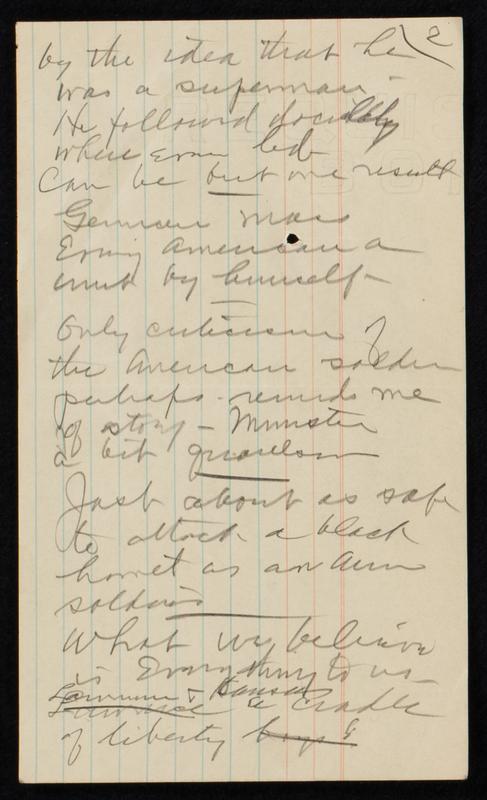 2
by the idea that he
was a superman -
He followed docilely
where ever led
Can be but one result
German mass
Every American a
unit by himself -
Only criticism of
the American soldier
perhaps - reminds me
of story - Minister
a bit quarelsom
Just about as safe
to attack a black
hornet as an Am
soldier
What we believe
is Everything to us -
Lawrence & Kansas
a cradle
of liberty